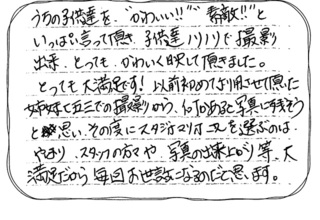 うちの子供達を、"かわいい!!" "素敵!!"と
いっぱい言って頂き 子供達ノリノリで撮影
出来、とっても かわいく映して頂きました。
とても大満足です!以前初めて利用させて頂いた
姉妹で七五三での撮影から、何かあると写真に残そう
と思い、その度にスタジオマリオさんを選ぶのは
やはり、スタッフの方々や 写真の出来上がり等、大
満足だから毎回お世話になるのだと思います。